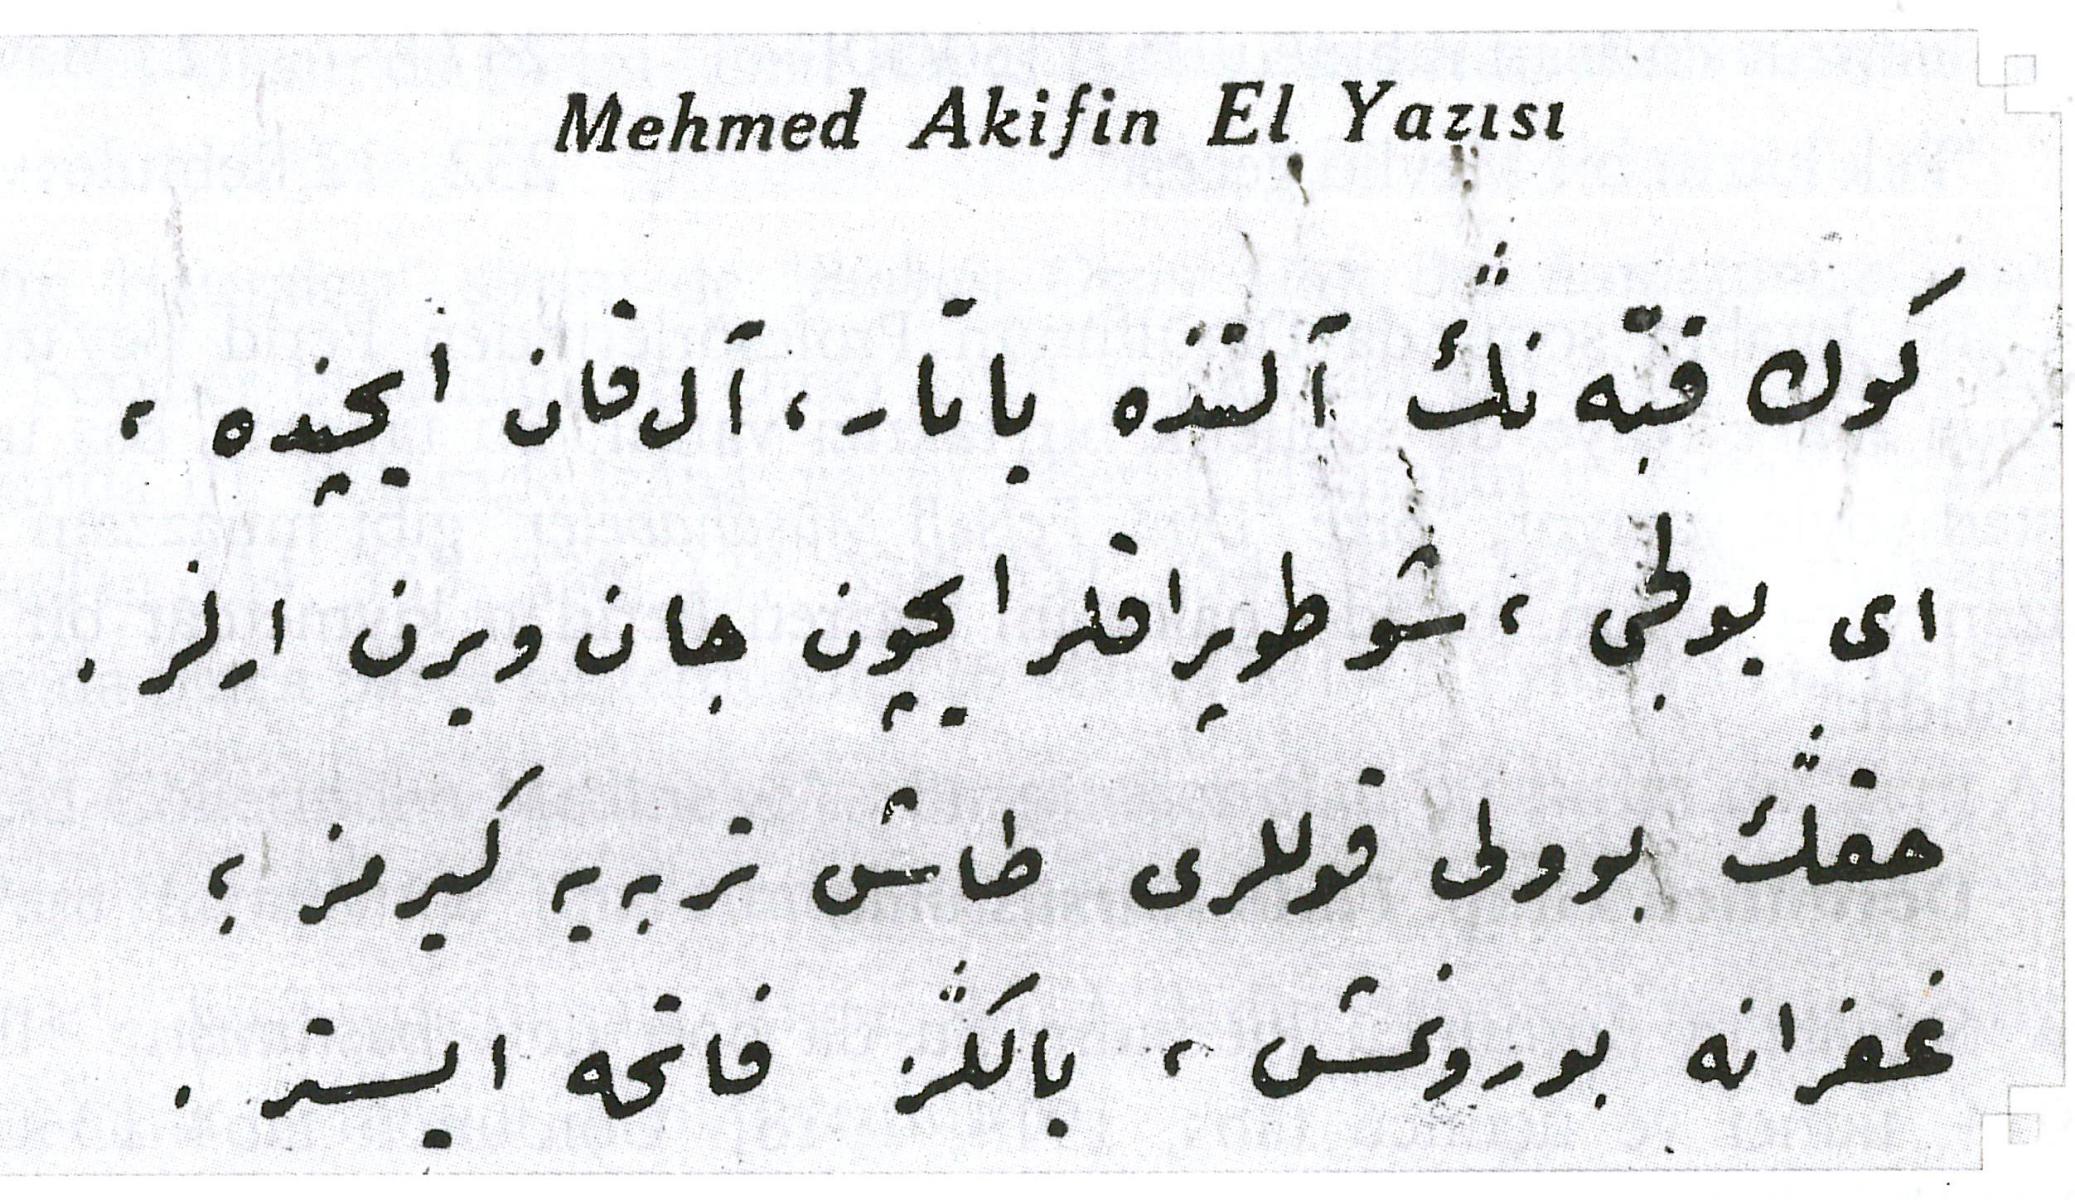 Mehmed Akifin El Yazısı
كوك قبّه نڭ آلتنده ياتار، آل قان ايچنده ،
اى يولجى ، شو طوپراقلر ايچون جان ويرن ارلر .
حقڭ بو ولى قوللرى طاش تربه يه كيرمز ؛
غفرانه بورونمش ، يالڭز فاتحه ايستر .